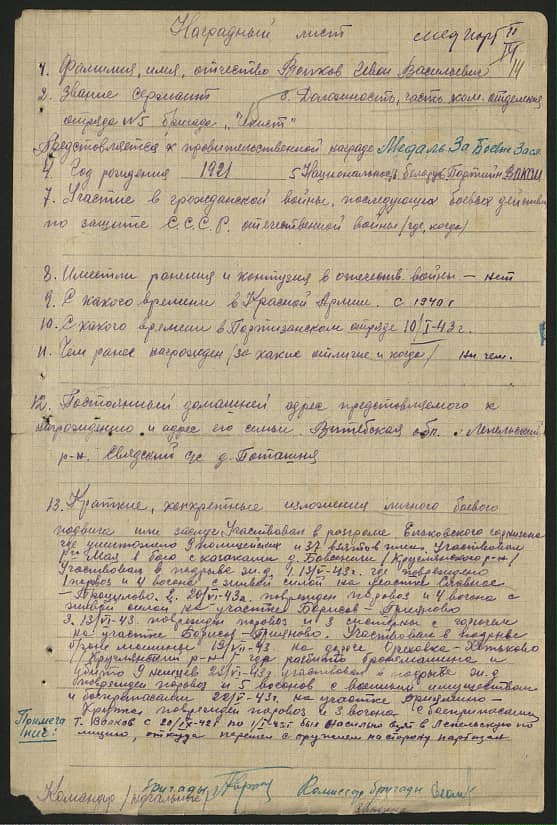 Наградный лист
1. Фамилия, имя, отчество Волков Иван Васильевич
2. Звание сержант 6. Должность, часть ком. отделения
отряда №5 бригада
Представляется к правительственной награде Медаль За Боев Засл
4. Год рождения 1921 5 Национальность белорус Партийн ВЛКСМ
7. Участие в гражданской войны, последующих боевых действ
по защите С.С.С.Р. отечественной войны /где, когда/
8. Имеет ли ранения и контузия в отечеств. войны – нет
9. С какого времени в Красной Армии. с 1940 г
10. С какого времени в Партизанском отряде 10/I-43 г.
11. Чем ранее награжден /за какие отличие и когда/ ни чем.
12. Постоянный домашней адрес представляемого к
награждению и адрес его семьи. Витебская обл. Лепельский
р-н. Свядский с/с д. Поташня
13. Краткие, конкретные изложения личного боевого
подвига или заслуг. Участвовал в разгроме гарнизона
где уничтожено 9 полицейских и 37 взятов плен. Участвовал
Мая в бою с казаками д. /Круглянского р-н/
Участвовал в подрыве ж.д. 1. 13/VI-43 г. где повреждено
1 паровоз и 4 вогона с живой силой на участке Славное
2. 20/VI-43 г. поврежден паровоз и 4 вогона с
живой силой на участке Борисов – Приямино
3. 13/VII-43 поврежден паровоз и 3 систерны с горючем
на участке Борисов – Приямино. Участвовал в подрыве
броне машины 19/VII-43 на дороге Ореховка –
/Круглянский р-н/ где разбито бронемашина и
убито 9 немцев 25/VII-43 г участвовал в подрыве ж.д
поврежден паровоз и 5 вогонов с военным имуществом
и боеприпасами. 28/VII-43 г. на участке Приямино –
Крупка поврежден паровоз и 3 вогона с боеприпасами
Примеча
ние:
т. Волков с по был насильно взят в Лепельскую по
лицию, откуда перешел с оружием на сторону партизан
Командир /начальник/ бригады
Комиссар бригады